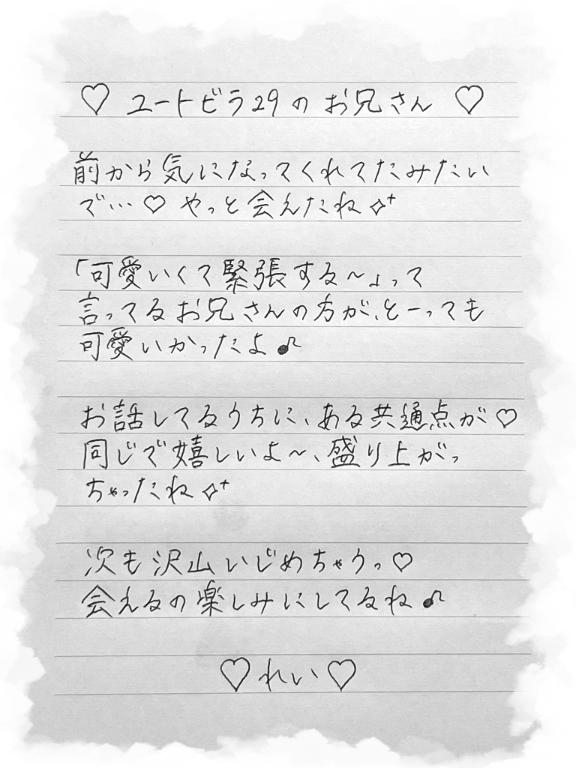 ♡ ユートピラ29のお兄さん ♡
前から気になってくれてたみたい
で…♡ やっと会えたね✧⁺
「可愛いくて緊張する〜」って
言ってるお兄さんの方が、とーっても
可愛いかったよ♪
お話してるうちに、ある共通点が♡
同じで嬉しいよ〜、盛り上がっ
ちゃったね✧⁺
次も沢山いじめちゃうっ♡
会えるの楽しみにしてるね♪
♡れい♡